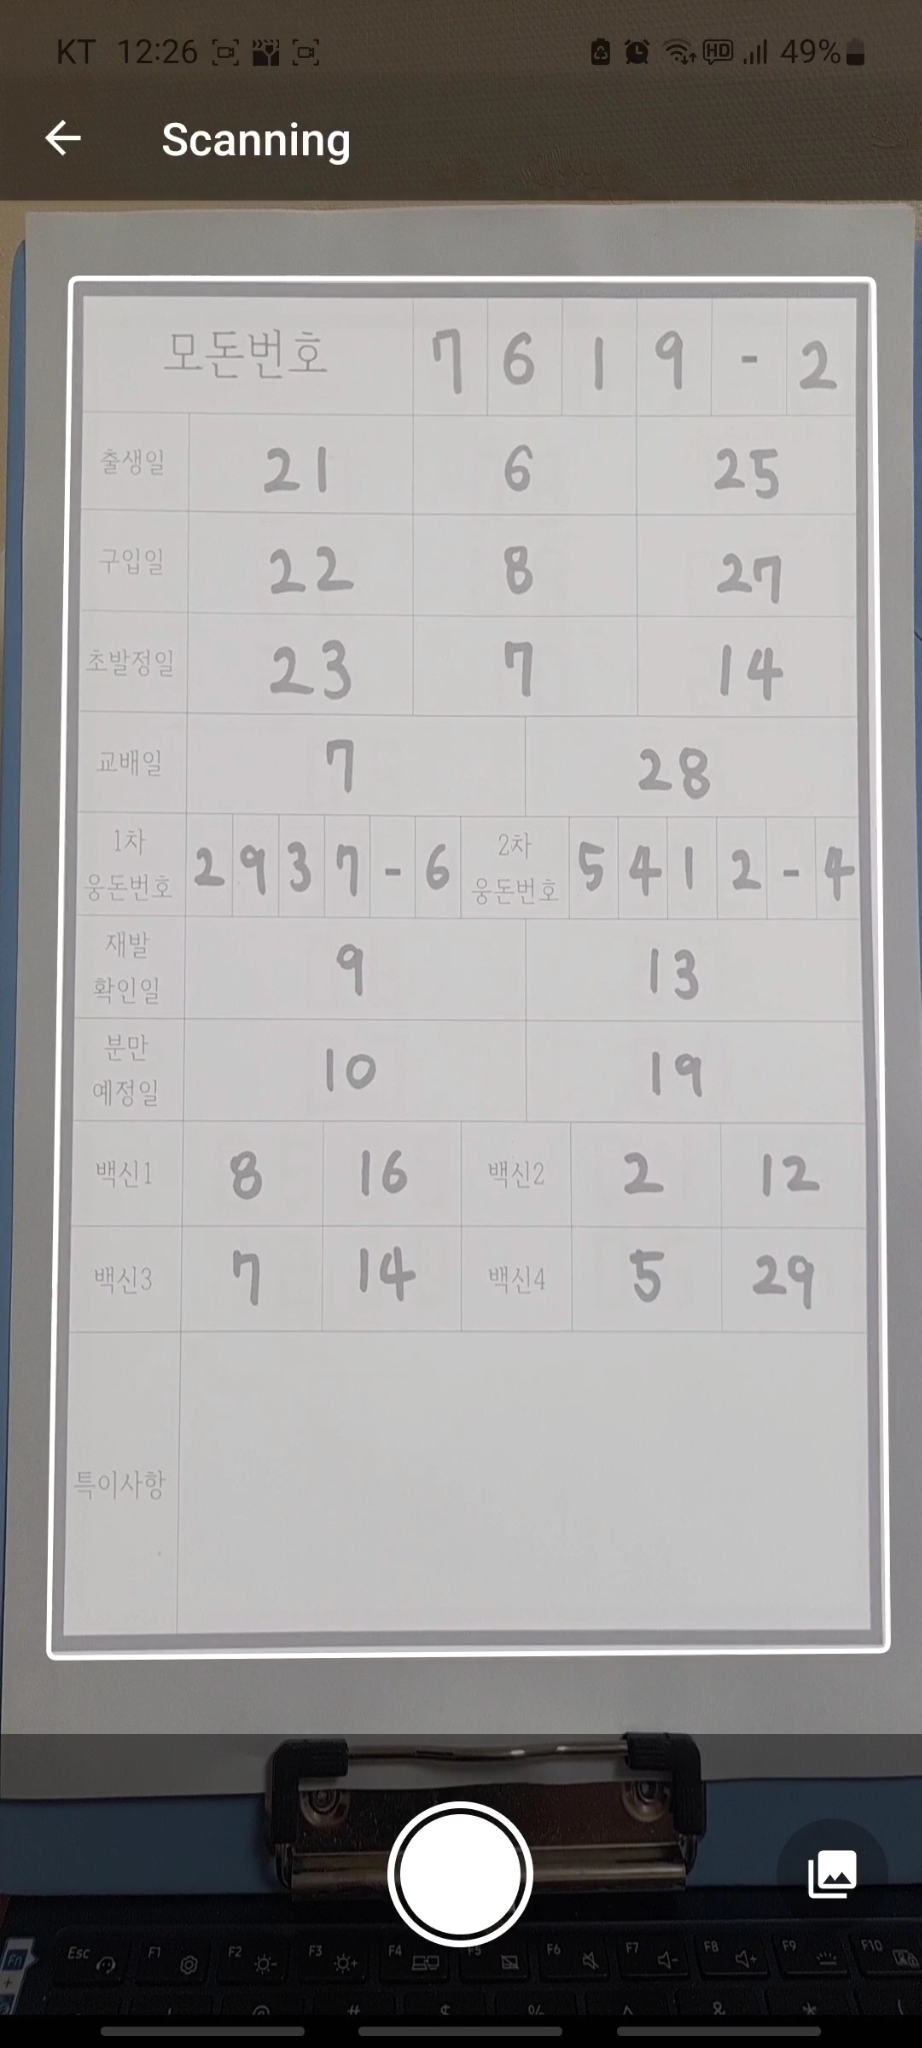 KT 12:26 HD 49%
Scanning
모돈번호 7 6 1 9 - 2
출생일 21 6 25
구입일 22 8 27
초발정일 23 7 14
교배일 7 28
1차 웅돈번호 2 9 3 7 - 6 2차 웅돈번호 5 4 1 2 - 4
재발 확인일 9 13
분만 예정일 10 19
백신1 8 16 백신2 2 12
백신3 7 14 백신4 5 29
특이사항
Fn Esc F1 F2 F3 F4 F5 F6 F7 F8 F9 F10
# $ % ^ & * (